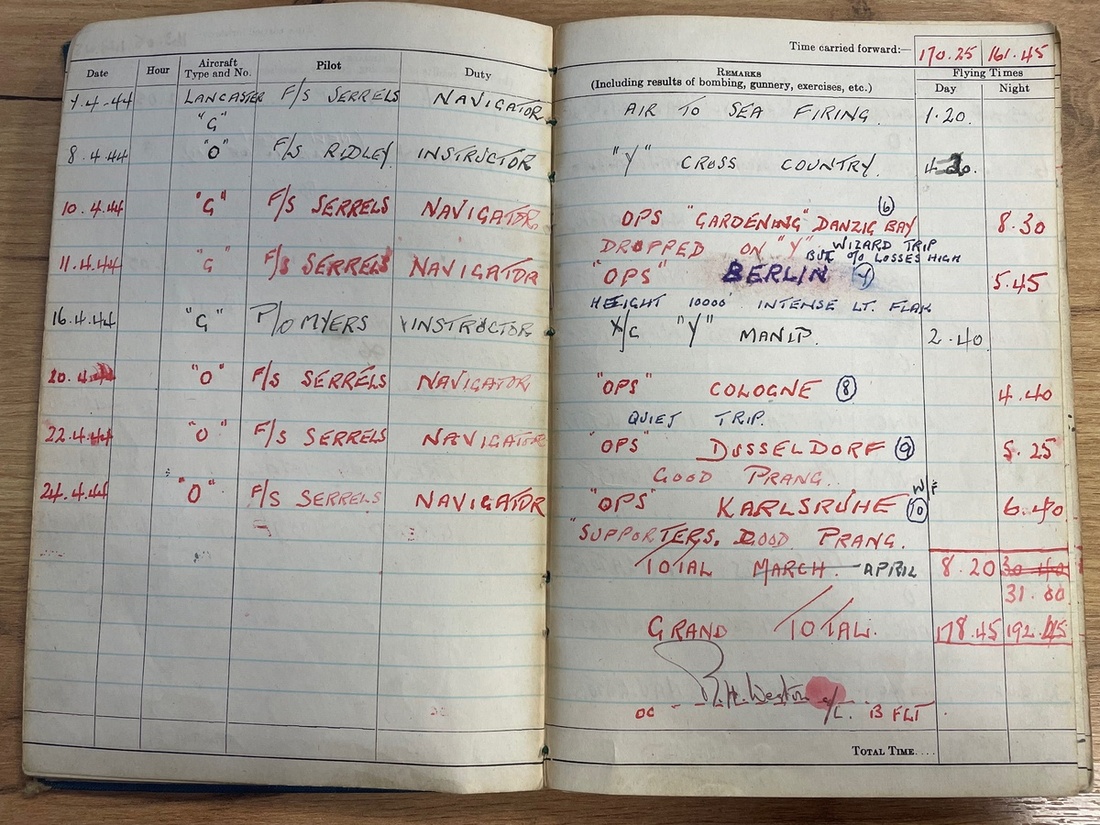 Time carried forward:— 170.25 161.45
Date Hour Aircraft Type and No. Pilot Duty REMARKS (Including results of bombing, gunnery, exercises, etc.) Flying Times Day Night
7.4.44 LANCASTER "G" F/S SERRELS NAVIGATOR AIR TO SEA FIRING. 1.20.
8.4.44 "O" F/S RIDLEY. INSTRUCTOR "Y" CROSS COUNTRY.
10.4.44 "G" F/S SERRELS NAVIGATOR. OPS "GARDENING" DANZIG BAY (6) 8.30
DROPPED ON "Y" WIZARD TRIP
BUT % LOSSES HIGH
11.4.44 "G" F/S SERRELS NAVIGATOR "OPS" BERLIN 5.45
HEIGHT 10000' INTENSE LT. FLAK
16.4.44 "G" P/O MYERS INSTRUCTOR X/C "Y" MANIP. 2.40.
20.4.44 "O" F/S SERRELS NAVIGATOR "OPS" COLOGNE (8) 4.40
QUIET TRIP.
22.4.44 "O" F/S SERRELS NAVIGATOR "OPS" DUSSELDORF (9) 5.25
GOOD PRANG.
24.4.44 "O" F/S SERRELS NAVIGATOR "OPS" KARLSRUHE (10) 6.40
"SUPPORTERS. GOOD PRANG.
TOTAL MARCH. APRIL 8.20 30 40
31.00
GRAND TOTAL. 178.45 192.45
R.H. Weston
OC B FLT
TOTAL TIME....